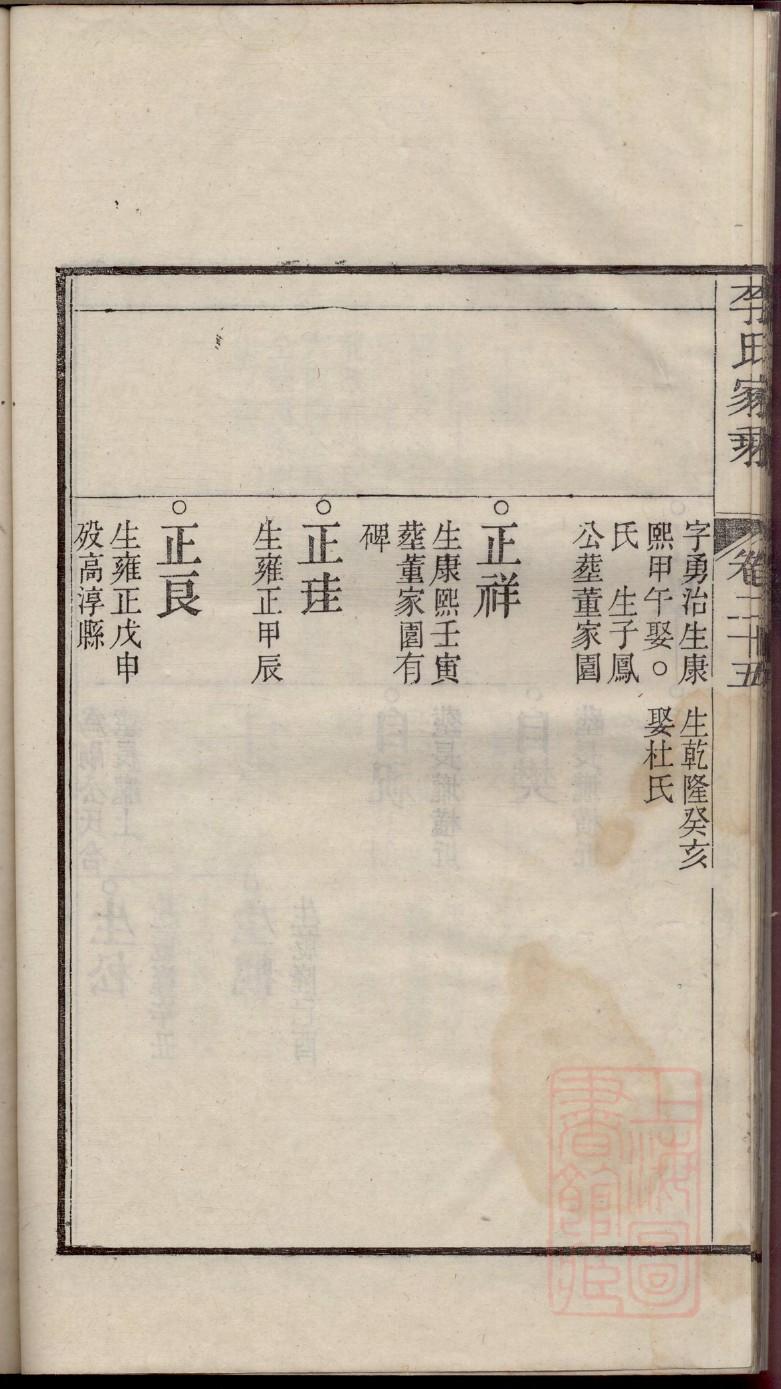 李氏家乘
卷二十五
字勇治生康
熙甲午娶○
氏　生子鳳
公塟董家園
生乾隆癸亥
娶杜氏
○正祥
生康熙壬寅
塟董家園有
碑
○正珪
生雍正甲辰
○正良
生雍正戊申
殁高淳縣
上海圖
書館藏